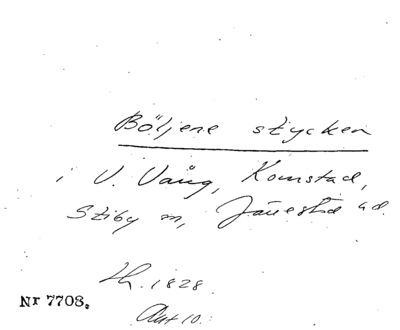 Böljene stycken
i V. Vång, Komstad,
Stiby m, Järrestad ad.
Lh. 1828.
Nr 7708.
Akt 10.